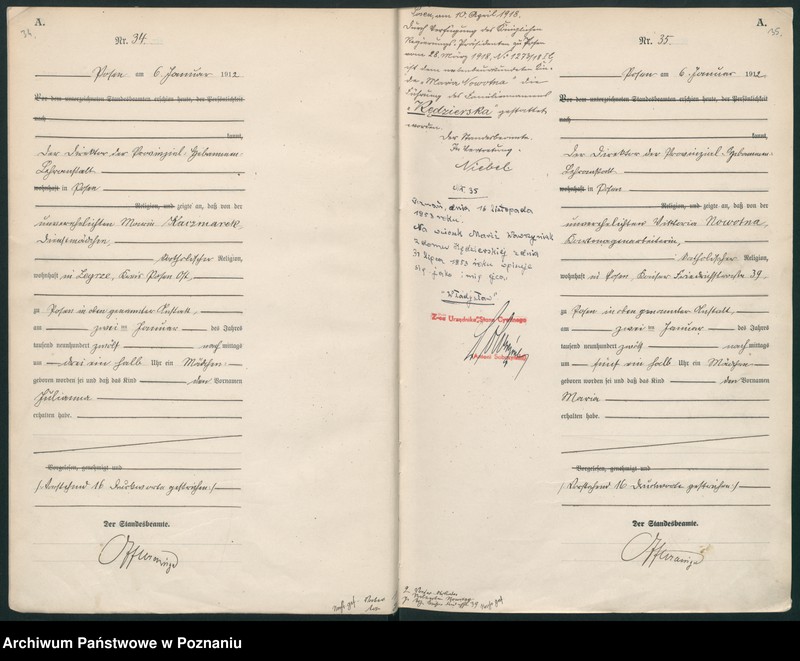 A.
34.
Nr. 34.
Posen am 6. Januar 1912
Vor dem unterzeichneten Standesbeamten erschien heute, der Persönlichkeit
nach
kannt,
Der Direktor der Provinzial-Hebammen-
Lehranstalt
wohnhaft in Posen
Religion, und zeigte an, daß von der
unverehelichten Maria Karzmarek,
Dienstmädchen,
katholischer Religion,
wohnhaft in Kreis Posen Ost,
zu Posen in oben genannter Anstalt,
am zwei ten Januar des Jahres
tausend neunhundert zwölf nach mittags
um drei ein halb Uhr ein Mädchen
geboren worden sei und daß das Kind den Vornamen
Julianna
erhalten habe.
Vorgelesen, genehmigt und
(Vorstehend 16 Druckworte gestrichen.)
Der Standesbeamte.
Posen, am 10. April 1918.
Durch Verfügung des Königlichen
Regierungs-Präsidenten zu Posen
vom 28. März 1918. No
ist dem
"Maria Nowotna" die
Führung des Familiennamens
"Kędzierska" gestattet
worden.
Der Standesbeamte.
In Vertretung.
Niebel
Nr. 35
Poznań, dnia 16 listopada
1953 roku.
Na wniosek Marii Wawrzyniak
z domu Kędzierskiej z dnia
31 lipca 1953 roku wpisuje
się jako imię ojca
"Władysław"
Urzędnika Stanu Cywilnego
A.
35.
Nr. 35.
Posen am 6. Januar 1912
Vor dem unterzeichneten Standesbeamten erschien heute, der Persönlichkeit
nach
kannt,
Der Direktor der Provinzial-Hebammen-
Lehranstalt
wohnhaft in Posen
Religion, und zeigte an, daß von der
unverehelichten Viktoria Nowotna,
Kartonagenarbeiterin,
katholischer Religion,
wohnhaft in Posen, Kaiser Friedrichstrasse 39
zu Posen in oben genannter Anstalt,
am zwei ten Januar des Jahres
tausend neunhundert zwölf nach mittags
um fünf ein halb Uhr ein Mädchen
geboren worden sei und daß das Kind den Vornamen
Maria
erhalten habe.
Vorgelesen, genehmigt und
(Vorstehend 16 Druckworte gestrichen.)
Der Standesbeamte.
Archiwum Państwowe w Poznaniu